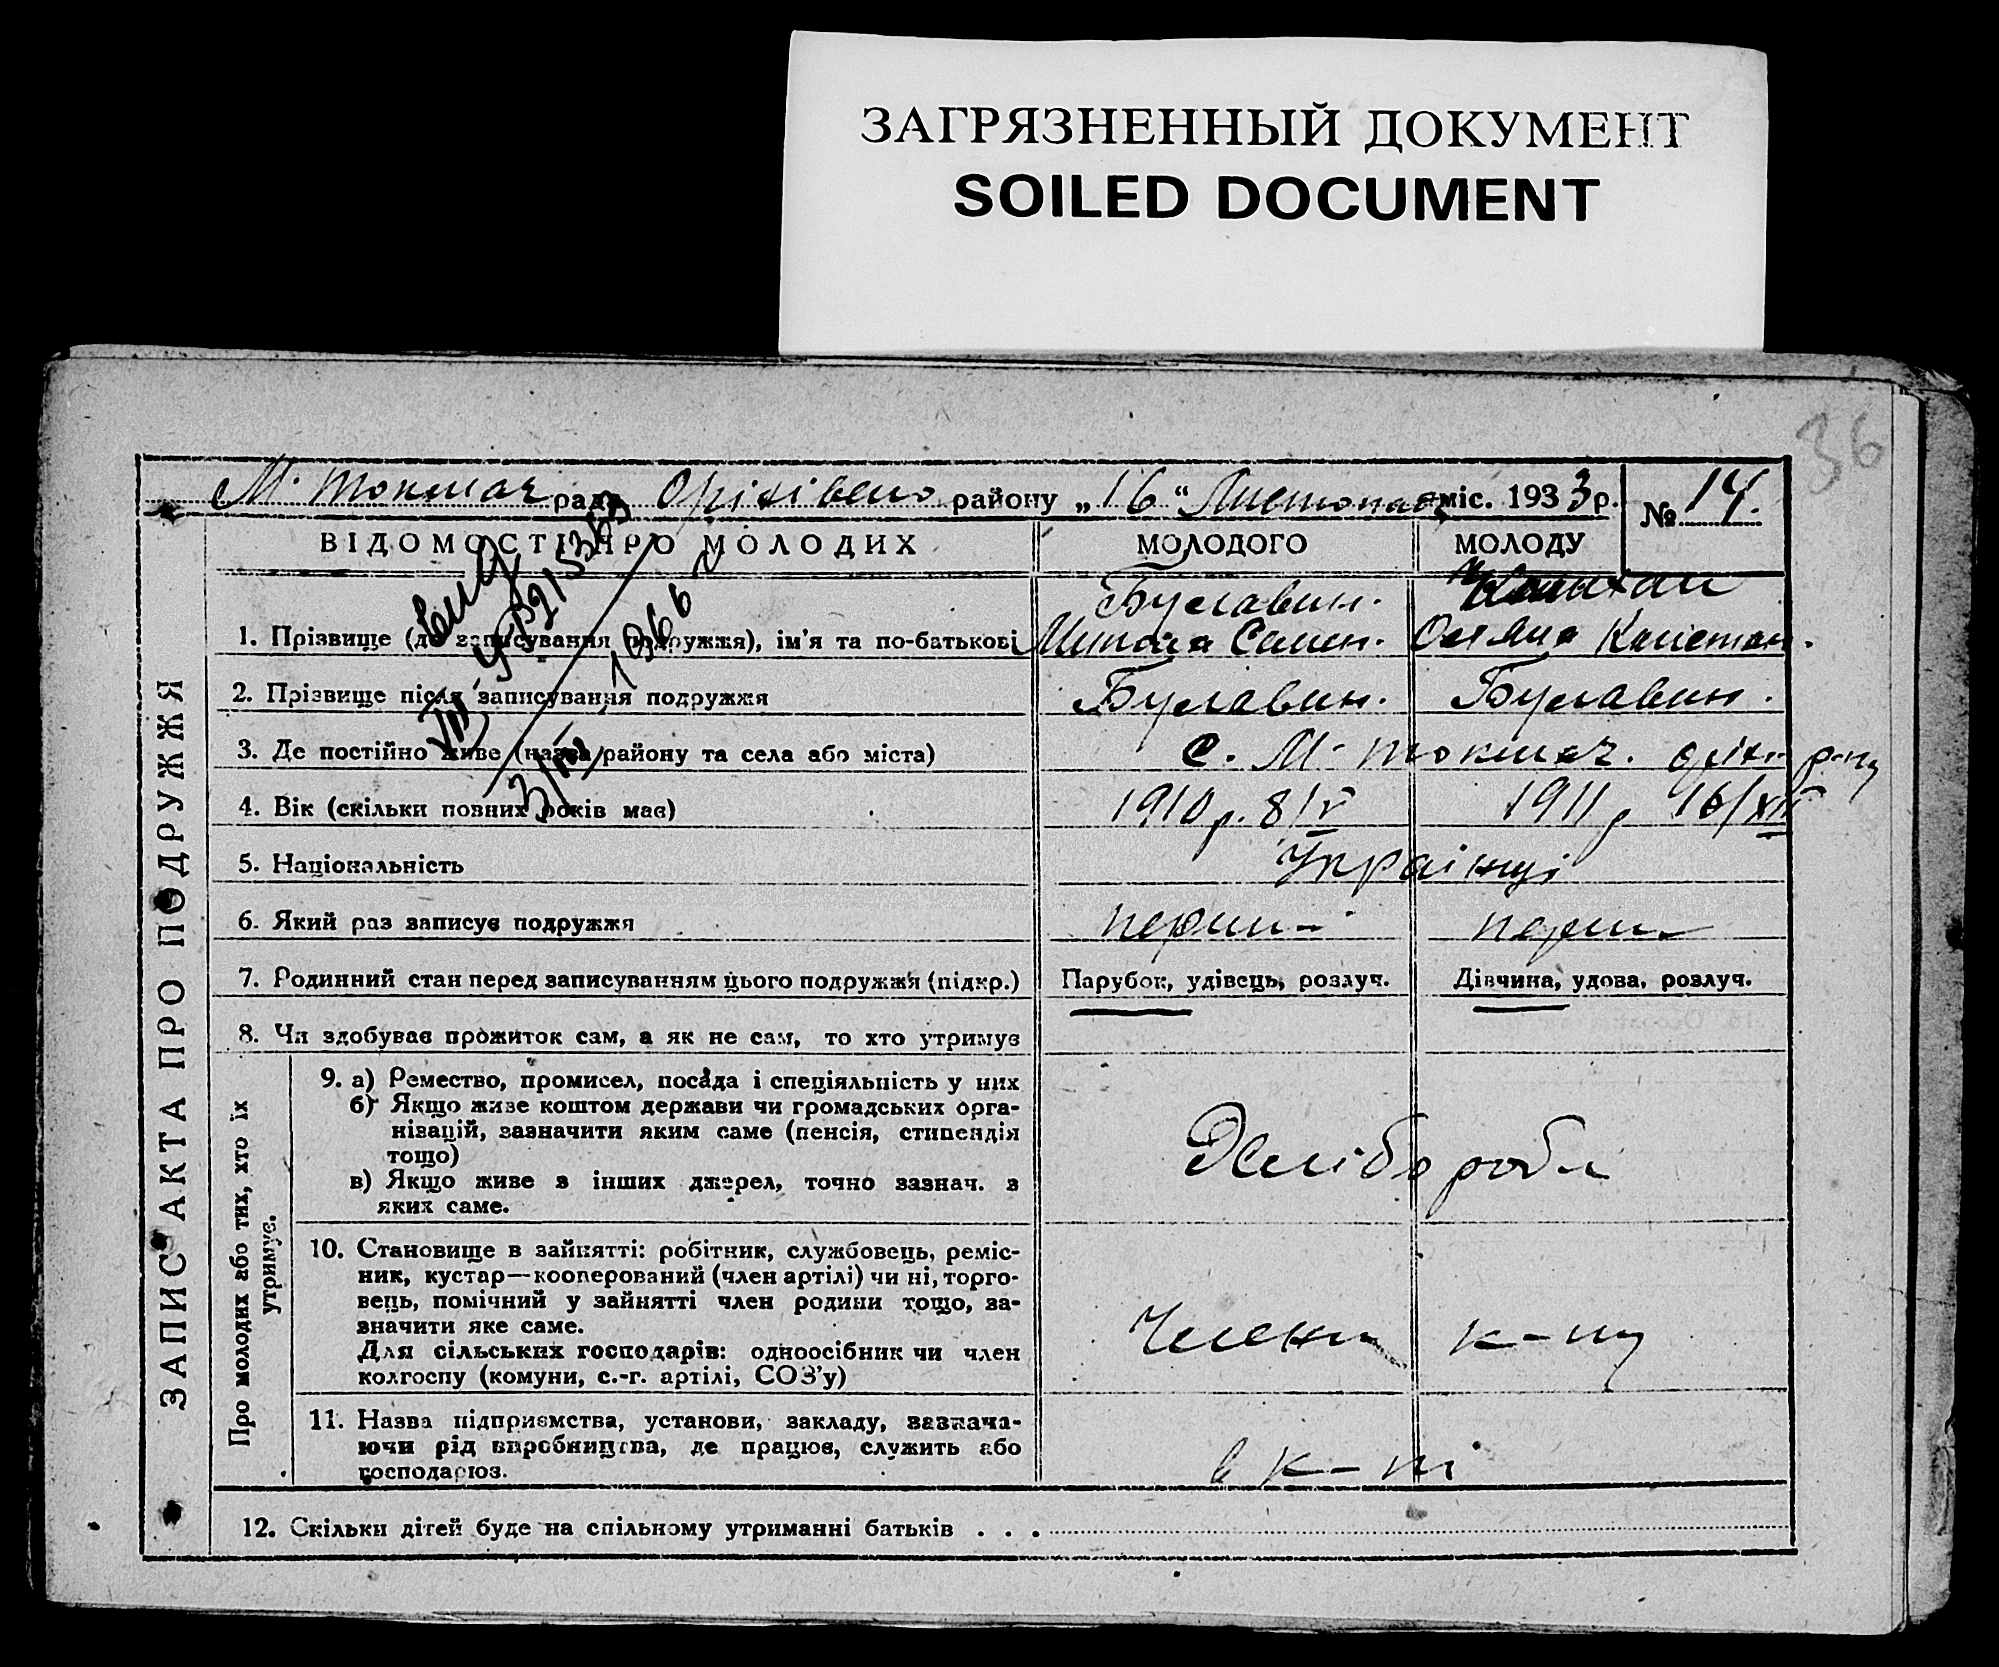 ЗАГРЯЗНЕННЫЙ ДОКУМЕНТ
SOILED DOCUMENT
36
М. Токмач рада Оріхівсько району „16“ Листопад міс. 1933 р. № 14.
ВІДОМОСТІ ПРО МОЛОДИХ МОЛОДОГО МОЛОДУ
Буславин.
1. Прізвище (до записування подружжя), ім'я та по-батькові Микола Семен.
2. Прізвище після записування подружжя Буславин. Буславин.
3. Де постійно живе (назва району та села або міста) с. М. Токмач. оріх. р-ну
4. Вік (скільки повних років має) 1910 р. 8/V 1911 р 16/XII
5. Національність Українці
6. Який раз записує подружжя перший перш
7. Родинний стан перед записуванням цього подружжя (підкр.) Парубок, удівець, розлуч. Дівчина, удова, розлуч.
8. Чи здобуває прожиток сам, а як не сам, то хто утримує
9. а) Ремество, промисел, посада і спеціяльність у них
б) Якщо живе коштом держави чи громадських орга-
нізацій, зазначити яким саме (пенсія, стипендія
тощо)
в) Якщо живе з інших джерел, точно зазнач. з
яких саме.
Хлібороби
10. Становище в зайнятті: робітник, службовець, реміс-
ник, кустар—кооперований (член артілі) чи ні, торго-
вець, помічний у зайнятті член родини тощо, за-
значити яке саме.
Для сільських господарів: одноосібник чи член
колгоспу (комуни, с.-г. артілі, СОЗ'у)
Члени к-пу
11. Назва підприємства, установи, закладу, зазнача-
ючи рід виробництва, де працює, служить або
господарює.
в к-пі
12. Скільки дітей буде на спільному утриманні батьків . . .
ЗАПИС АКТА ПРО ПОДРУЖЖЯ
Про молодих або тих, хто їх
утримує.
1966